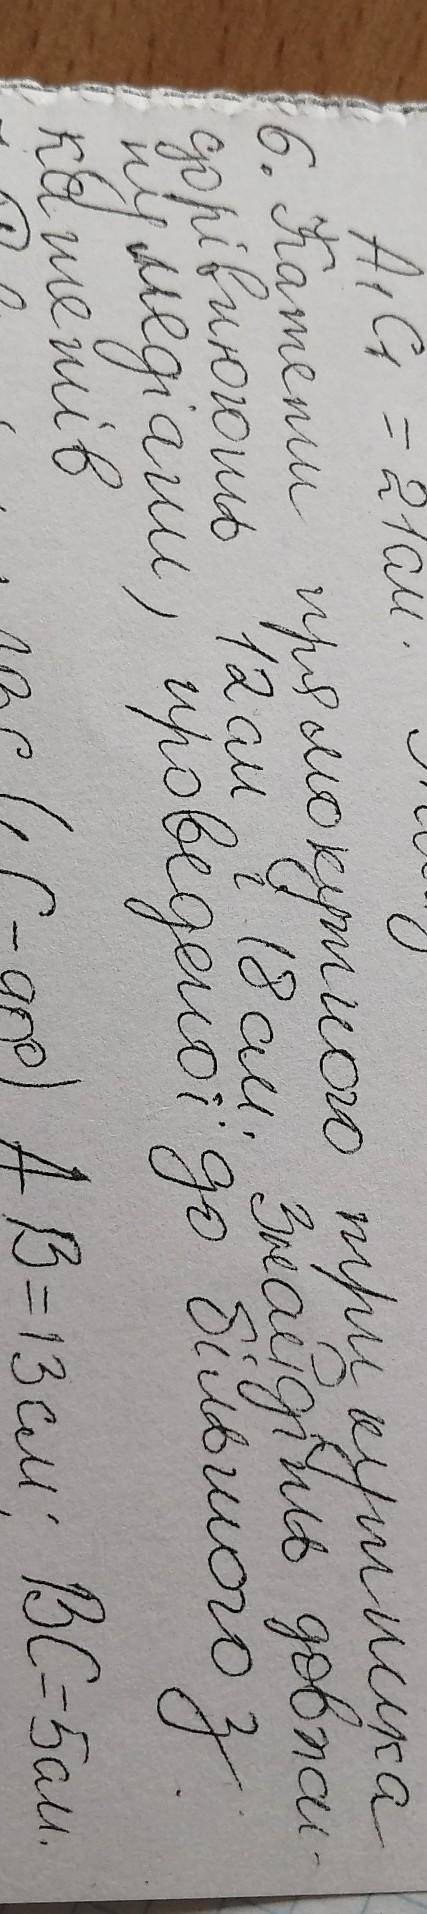 A₁C₁ = 21см.
6. Катети прямокутного трикутника
дорівнюють 12см і 18см. Знайдіть довжи-
ну медіани, проведеної до більшого з
катетів
(∠C-90°) AB=13см; BC=5см.